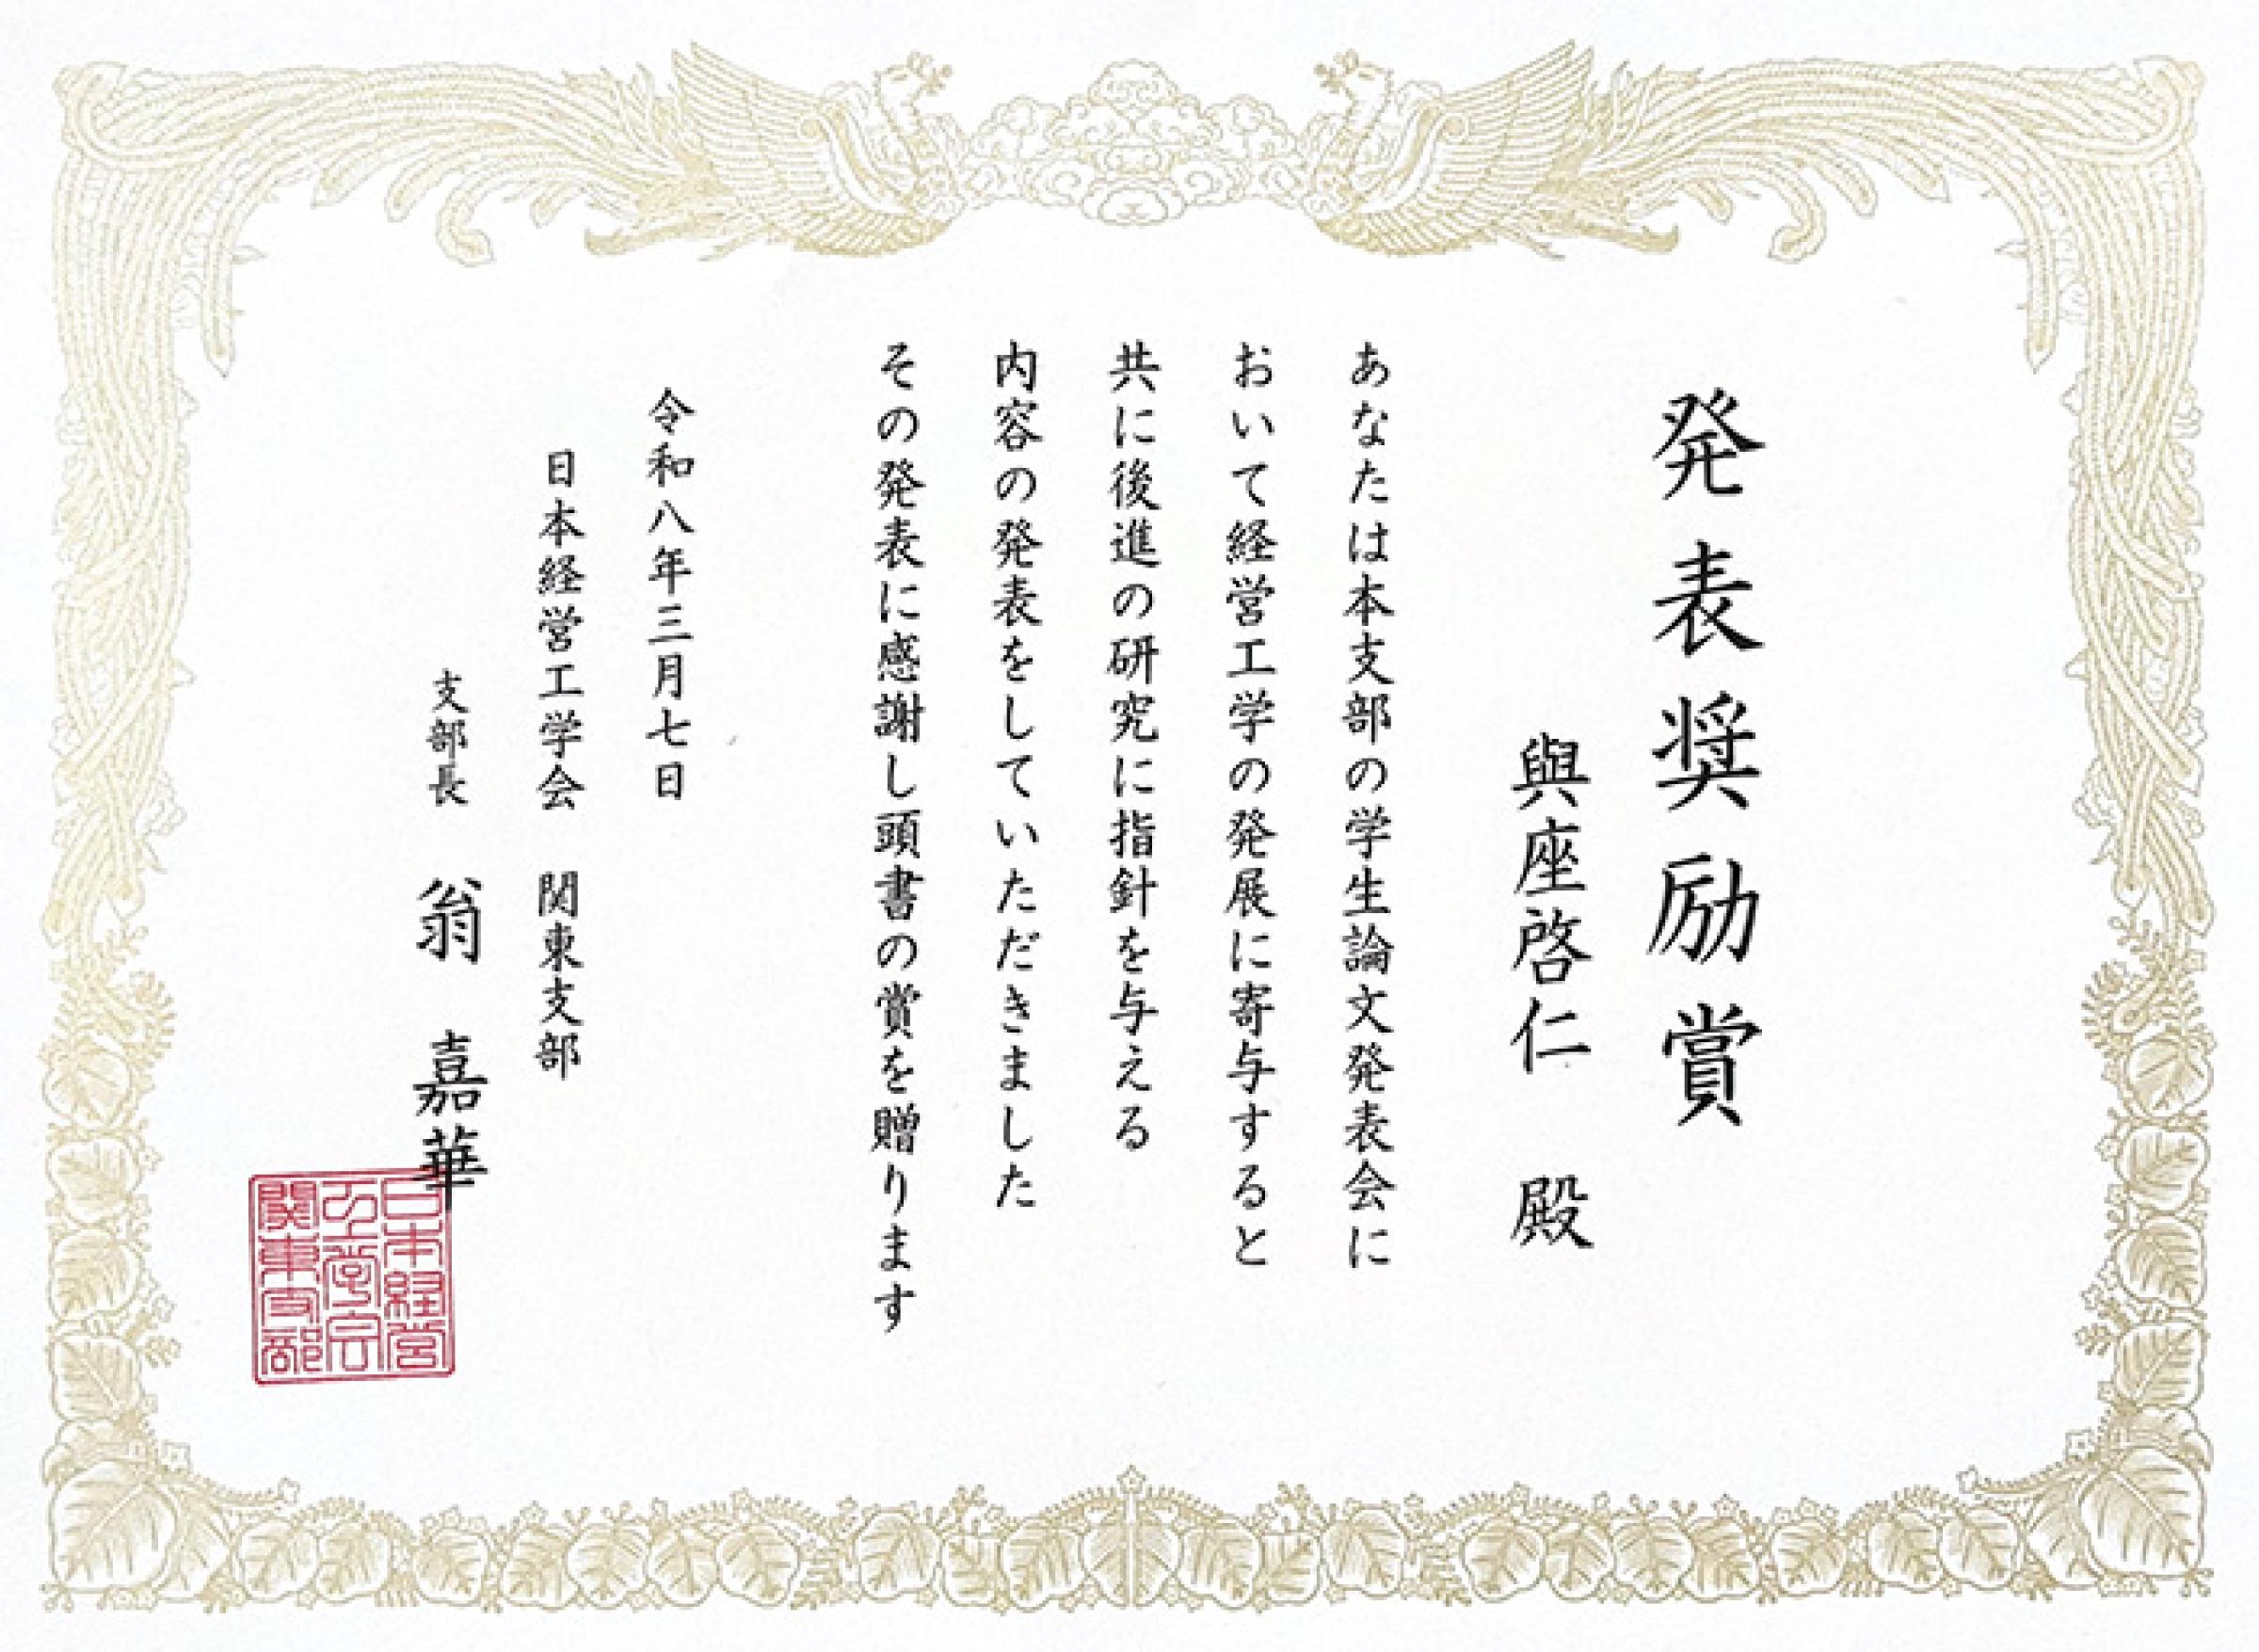 発表奨励賞
與座啓仁 殿
あなたは本支部の学生論文発表会に
おいて経営工学の発展に寄与すると
共に後進の研究に指針を与える
内容の発表をしていただきました
その発表に感謝し頭書の賞を贈ります
令和八年三月七日
日本経営工学会 関東支部
支部長 翁 嘉華
日本経営
工学会
関東支部